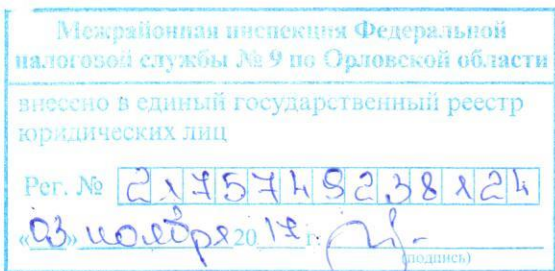 Межрайонная инспекция Федеральной
налоговой службы № 9 по Орловской области
внесено в единый государственный реестр
юридических лиц
Рег. № 2175749238124
«03» ноября 20 17 г.
(подпись)